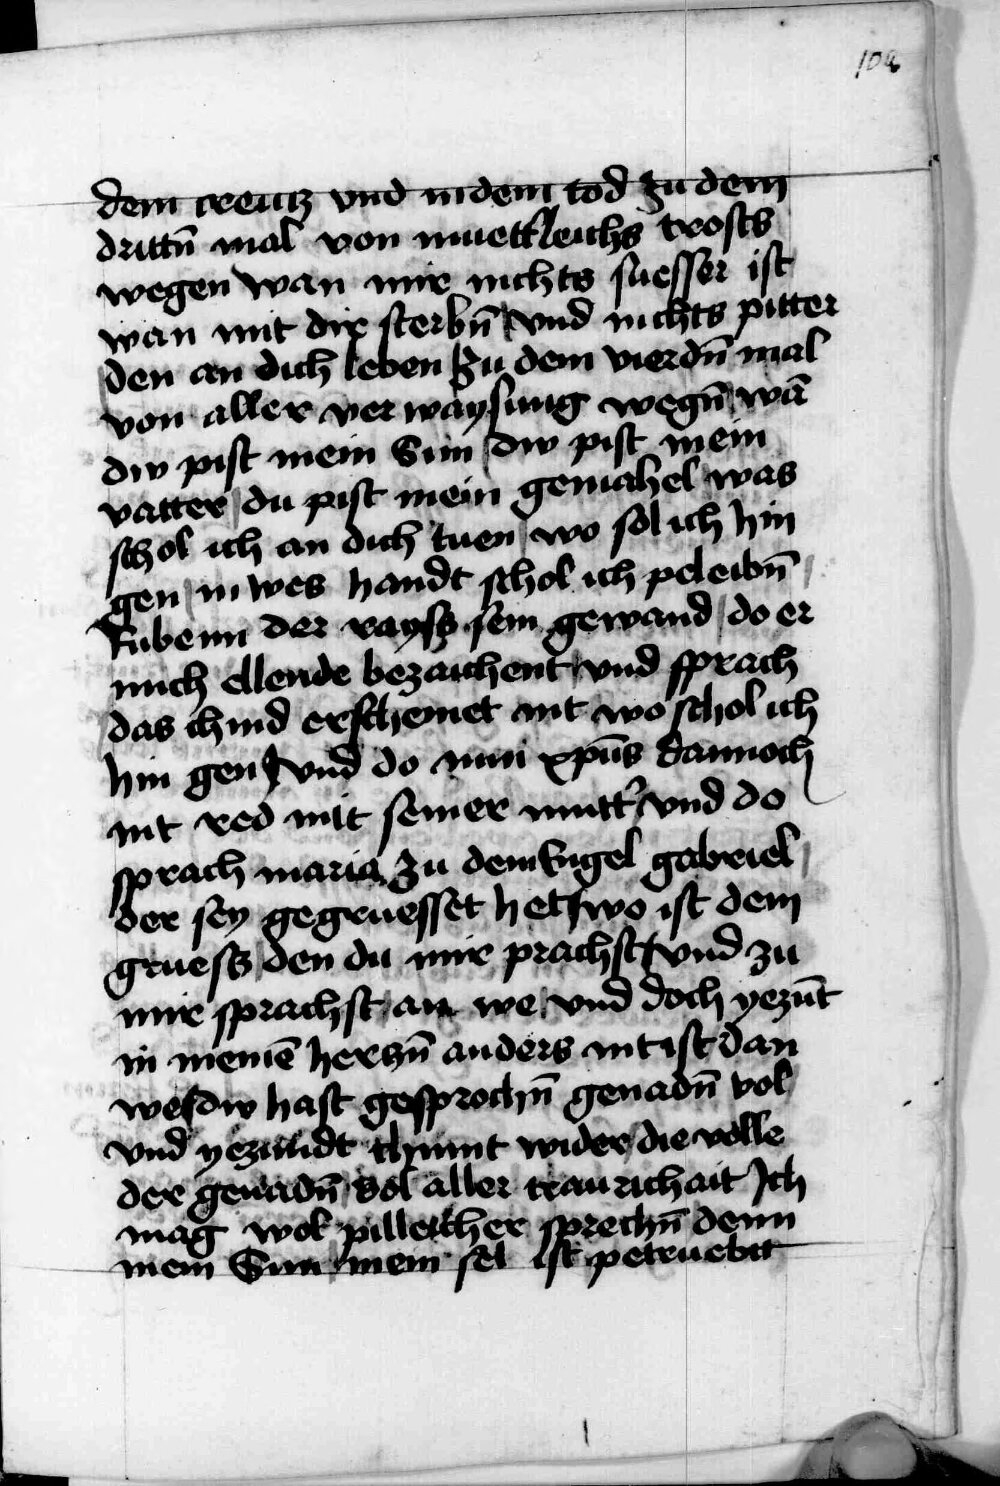 104
dem creutz vnd in dem tod Zu dem
drittn̄ mal von muettleichs trosts
wegen wan mir nichts suesser ist
wan mit dir sterbn̄ vnd nichts pitter
den an dich leben Zu dem vierdn̄ mal
von aller verwaysung wegn̄ wā
dw pist mein Sun dw pist mein
vatter du pist mein gemahel was
schol ich an dich tuen wo sol ich hin
gen in wes handt schol ich peleibn̄
Rubenn der rayss sein gewand do er
mich ellende bezaichent vnd sprach
das chind erscheinet nit wo schol ich
hin gen vnd do nun xpūs dannoch
nit red mit seiner mutt' vnd do
sprach maria zu dem Engel gabriel
der sey gegruesset het wo ist dein
gruess den du mir prachst vnd zu
mir sprachst an we vnd doch yezūt
in meinē herczn̄ anders nit ist dan
we dw hast gesprochn̄ genadn̄ vol
vnd yezundt chumt wider die volle
der genadn̄ vol aller traurichait Ich
mag wol pilleicher sprechn̄ denn
mein Sun mein sel ist petruebtt